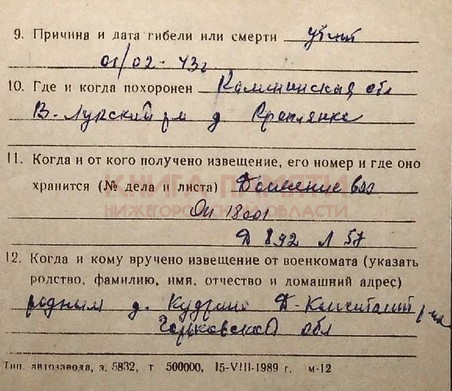 9. Причина и дата гибели или смерти убит
01/02-43г
10. Где и когда похоронен Калининская обл
В-Лукский р-н д.
11. Когда и от кого получено извещение, его номер и где оно
хранится (№ дела и листа) Донесение
КНИГА ПАМЯТИ
НИЖЕГОРОДСКОЙ ОБЛАСТИ
Оп 18001
Д 892 Л 57
12. Когда и кому вручено извещение от военкомата (указать
родство, фамилию, имя, отчество и домашний адрес)
родным д. Д-Константин р-на
Горьковской обл
Тип. автозавода, з. 5832, т 500000, 15-VIII-1989 г. м-12